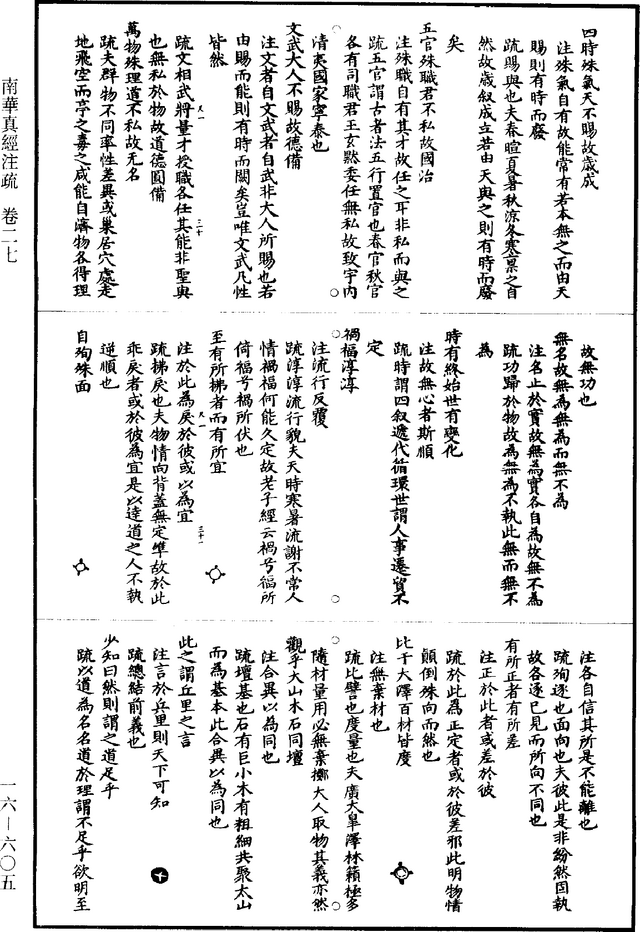 四時殊氣天不賜故歲成
注殊氣自有故能常有若本無之而由天
賜則有時而廢
疏賜與也夫春暄夏暑秋涼冬寒禀之自
然故歲叙成立若由天與之則有時而廢
矣
五官殊職君不私故國治
注殊職自有其才故任之耳非私而與之
疏五官謂古者法五行置官也春官秋官
各有司職君王玄默委任無私故致宇內
清夷國家寧泰也
文武大人不賜故德備
注文者自文武者自武非大人所賜也若
由賜而能則有時而闕矣豈唯文武凡性
皆然
疏文相武將量才授職各任其能非聖與
也無私於物故道德圓備
萬物殊理道不私故无名
疏夫群物不同率性差異或巢居穴處走
地飛空而亭之毒之咸能自濟物各得理
故無功也
無名故無為無為而無不為
注名止於實故無為實各自為故無不為
疏功歸於物故為無為不執此無而無不
為
時有終始世有變化
注故無心者斯順
疏時謂四叙遞代循環世謂人事遷貿不
定
禍福淳淳
注流行反覆
疏淳淳流行貌夫天時寒暑流謝不常人
情禍福何能久定故老子經云禍兮福所
倚福兮禍所伏也
至有所拂者而有所宜
注於此為戾於彼或以為宜
疏拂戾也夫物情向背蓋無定準故於此
乖戾者或於彼為宜是以達道之人不執
逆順也
自殉殊面
注各自信其所是不能離也
疏殉逐也面向也夫彼此是非紛然固執
故各逐已見而所向不同也
有所正者有所差
注正於此者或差於彼
疏於此為正定者或於彼差邪此明物情
顛倒殊向而然也
比于大澤百材皆度
注無棄材也
疏比譬也度量也夫廣大皐澤林籟極多
隨材量用必無棄擲大人取物其義亦然
觀乎大山木石同壇
注合異以為同也
疏壇基也石有巨小木有粗細共聚太山
而為基本此合異以為同也
此之謂丘里之言
注言於丘里則天下可知
疏總結前義也
少知曰然則謂之道足乎
疏以道為名名道於理謂不足乎欲明至
南華真經注疏　卷二七
一六—六〇五